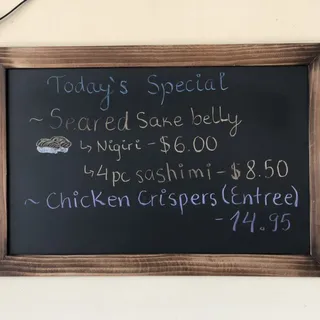 Today's Special
~ Seared Sake belly
↳ Nigiri - $6.00
↳ 4pc sashimi - $8.50
~ Chicken Crispers (Entree)
- 14.95